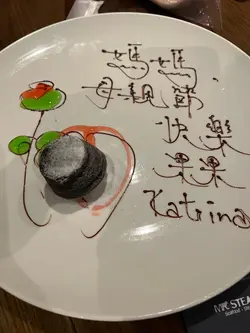 媽媽
母親節
快樂
果果
Katrina
MR STEA